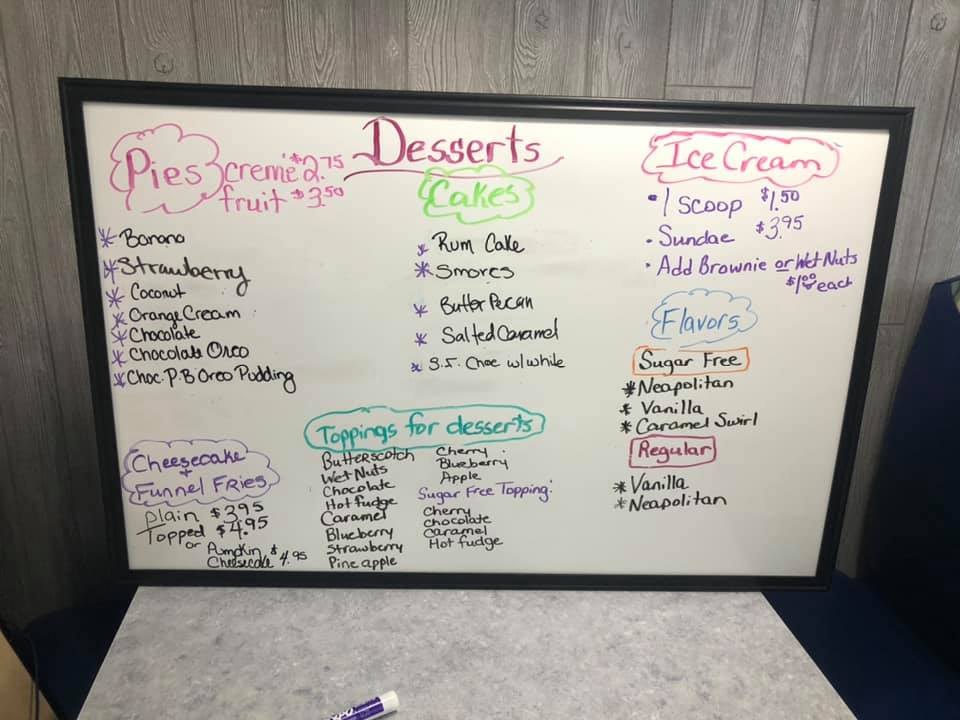 Desserts
Pies creme $2.75
fruit $3.50
* Banana
* Strawberry
* Coconut
* Orange Cream
* Chocolate
* Chocolate Oreo
* Choc. P.B Oreo Pudding
Cheesecake
+
Funnel Fries
Plain $3.95
Topped $4.95
or Pumpkin
Cheesecake $4.95
Cakes
* Rum Cake
* Smores
* Butter Pecan
* Salted Caramel
* S.F. Choc w/while
Toppings for desserts
Butterscotch
Wet Nuts
Chocolate
Hot fudge
Caramel
Blueberry
Strawberry
Pineapple
Cherry
Blueberry
Apple
Sugar Free Topping:
Cherry
chocolate
caramel
Hot fudge
Ice Cream
• 1 scoop $1.50
• Sundae $3.95
• Add Brownie or Wet Nuts
$1.00 each
Flavors
Sugar Free
* Neapolitan
* Vanilla
* Caramel Swirl
Regular
* Vanilla
* Neapolitan